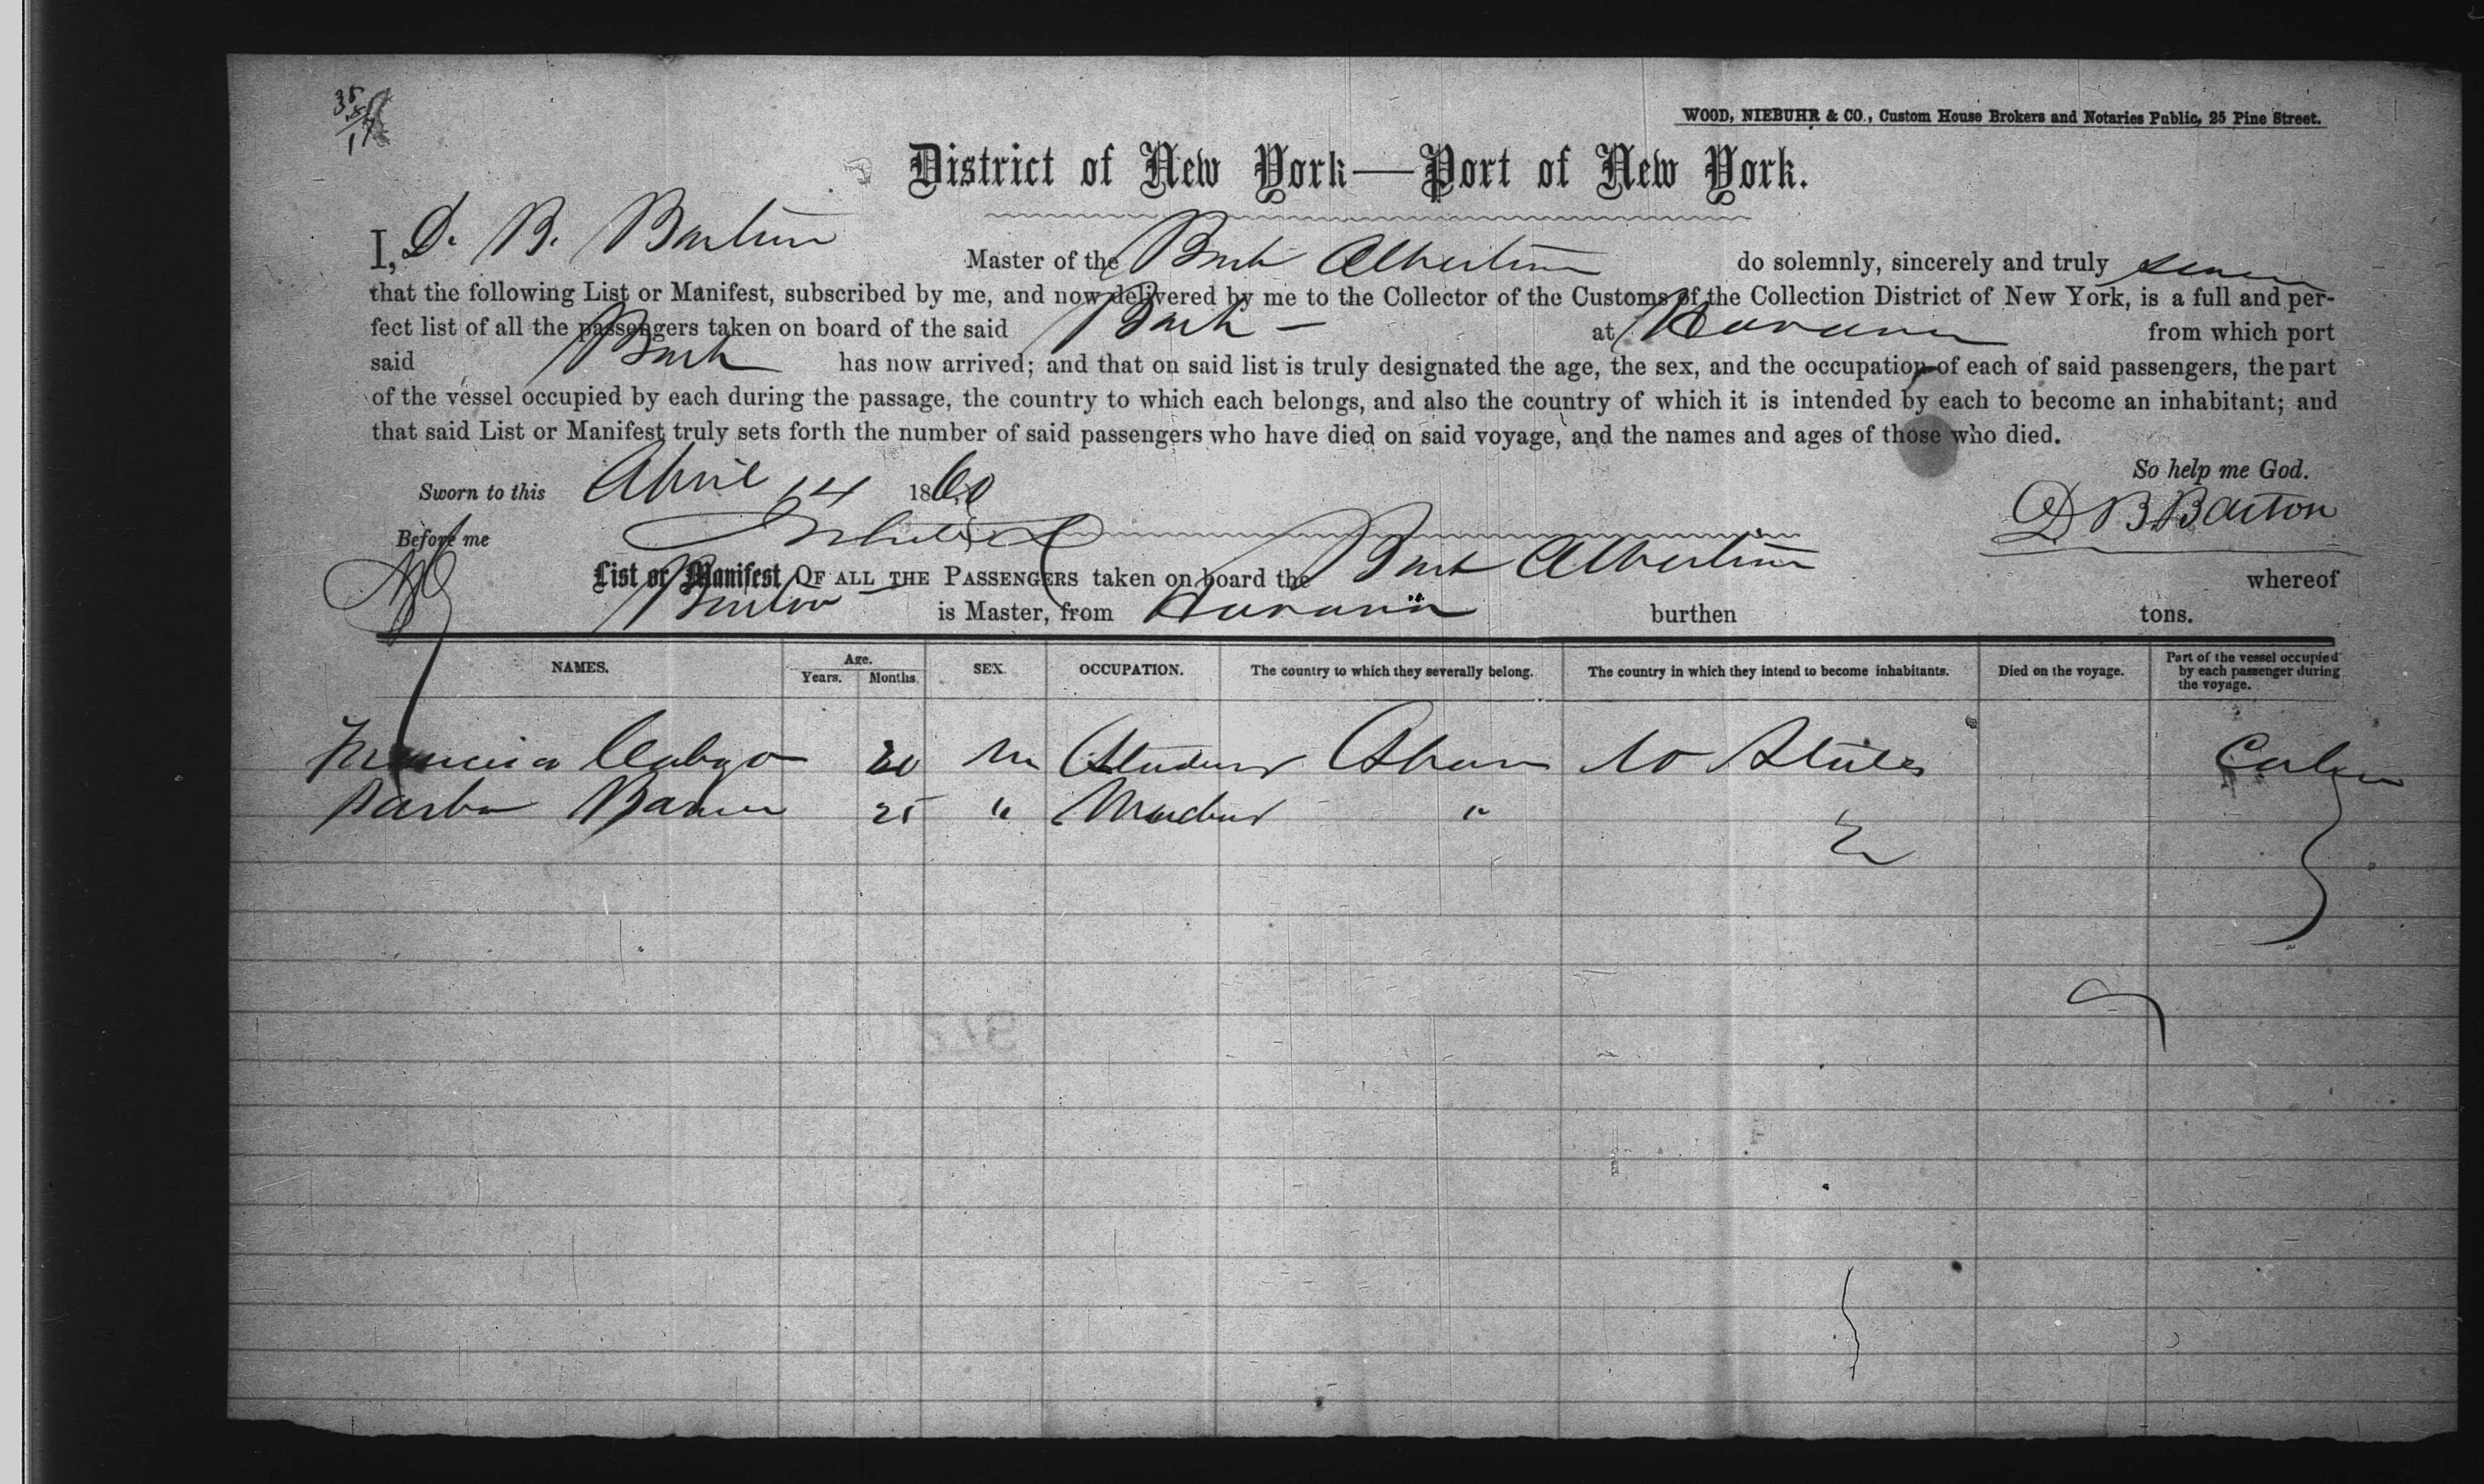 WOOD, NIEBUHR & CO., Custom House Brokers and Notaries Public, 25 Pine Street.
District of New York—Port of New York.
I, D. B. Barton Master of the Bark Albertina do solemnly, sincerely and truly swear
that the following List or Manifest, subscribed by me, and now delivered by me to the Collector of the Customs of the Collection District of New York, is a full and per-
fect list of all the passengers taken on board of the said Bark — at Havana from which port
said Bark has now arrived; and that on said list is truly designated the age, the sex, and the occupation of each of said passengers, the part
of the vessel occupied by each during the passage, the country to which each belongs, and also the country of which it is intended by each to become an inhabitant; and
that said List or Manifest truly sets forth the number of said passengers who have died on said voyage, and the names and ages of those who died.
So help me God.
Sworn to this April 14 1860
D B. Barton
Before me
List or Manifest OF ALL THE PASSENGERS taken on board the Bark Albertina whereof
Barton is Master, from Havana burthen tons.
NAMES. Age. Years. Months. SEX. OCCUPATION. The country to which they severally belong. The country in which they intend to become inhabitants. Died on the voyage. Part of the vessel occupied by each passenger during the voyage.
20 M States Cabin
25 " "